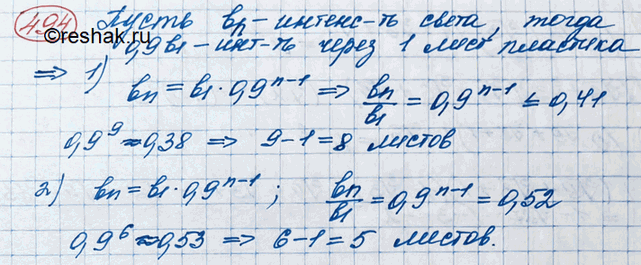 494 Пусть bn - интенс-ть света, тогда
©reshak.ru
0,9b1 - инт-ть через 1 лист пластика
=> 1) bn = b1 · 0,9^(n-1) => bn/b1 = 0,9^(n-1) ≤ 0,41
0,9^9 ≈ 0,38 => 9-1=8 листов
2) bn = b1 · 0,9^(n-1) ; bn/b1 = 0,9^(n-1) = 0,52
0,9^6 ≈ 0,53 => 6-1=5 листов.